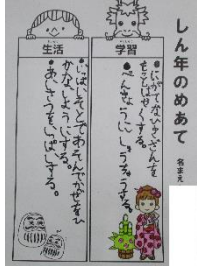 しん年のめあて
名まえ
学習
・にがてなひきざんを
をことばせくする。
・べんきょうにしゅう中する。
生活
・いっぱいそとであそんでかぜをひ
かないようにする。
・あいさつをいっぱいする。